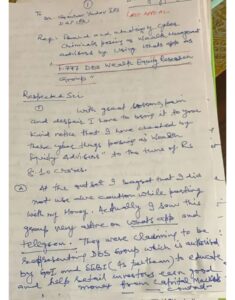 ①
To Sri Gaurav Yadav IPS
DGP PB.
LAST APPEAL
Reg: Fraud and cheating cyber
Criminals posing as Wealth Management
advisors by Using Whats app as
"F-777 DBS Wealth Equity Research
Group"
Respected Sir
① With great
and despair I have to bring it to your
kind notice that I have cheated by
these cyber thugs posing as Wealth
Equity advisors" to the tune of Rs
8.10 crores.
Ⓐ At the outset I regret that I did
not use alive caution while parting
with my money. Actually I saw this
group very active on Whats app and
telegram. They were claiming to be
representing DBS Group which is authorised
by RBI and SEBI to educate
and help retail investors earn good
money from Capital Markets